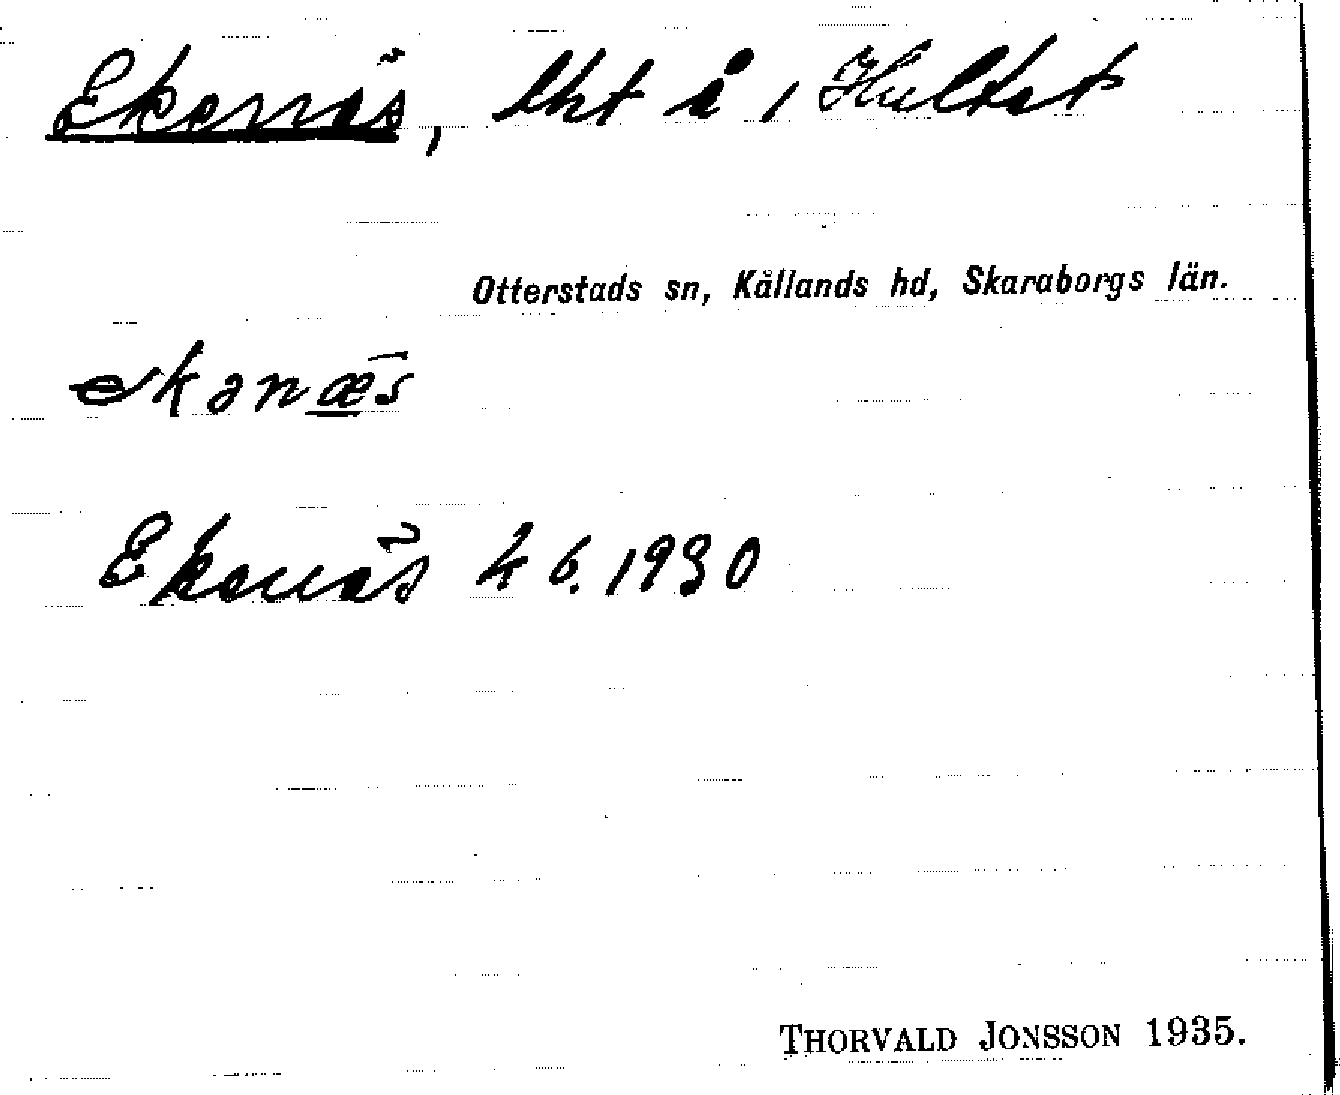 Ekenäs, lht å 1 Hultet
Otterstads sn, Kållands hd, Skaraborgs län.
ekanæs
Ekenäs k b. 1930
THORVALD JONSSON 1935.